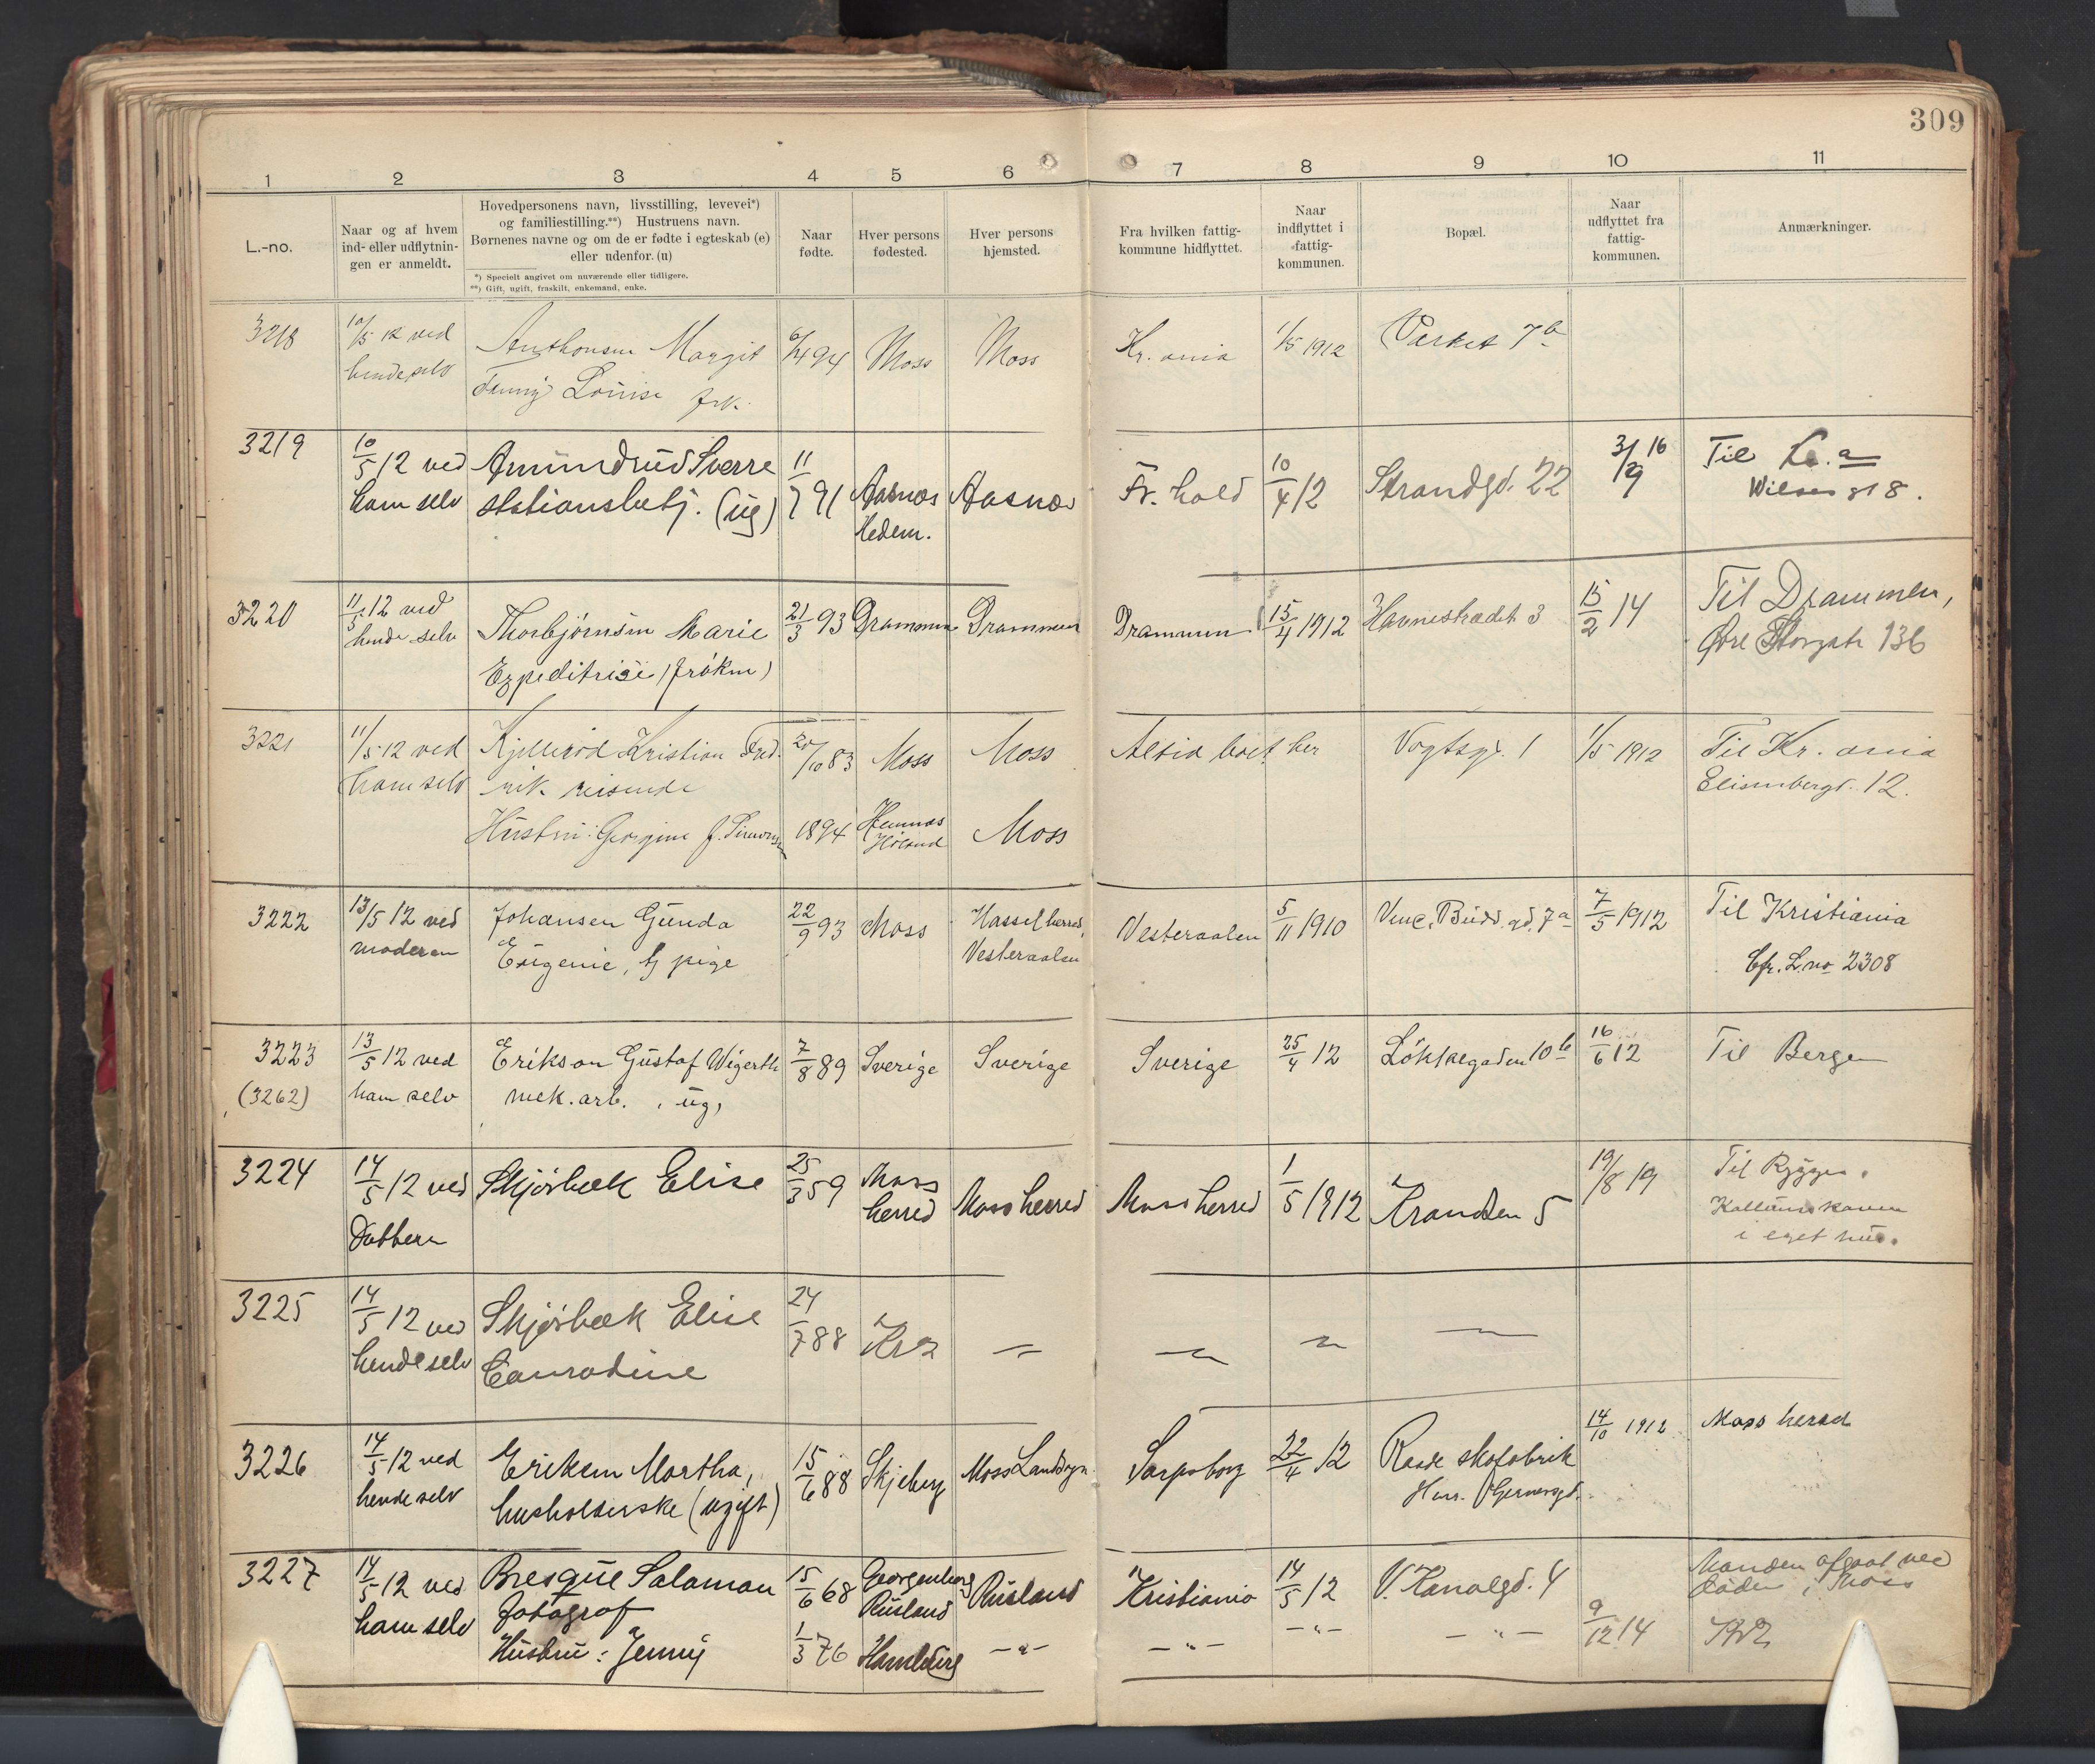 309
1 2 3 4 5 6 7 8 9 10 11
L.-no.
Naar og af hvem
ind- eller udflytnin-
gen er anmeldt.
Hovedpersonens navn, livsstilling, levevei*)
og familiestilling.**) Hustruens navn.
Børnenes navne og om de er fødte i egteskab (e)
eller udenfor. (u)
*) Specielt angivet om nuværende eller tidligere.
**) Gift, ugift, fraskilt, enkemand, enke.
Naar
fødte.
Hver persons
fødested.
Hver persons
hjemsted.
Fra hvilken fattig-
kommune hidflyttet.
Naar
indflyttet i
fattig-
kommunen.
Bopæl.
Naar
udflyttet fra
fattig-
kommunen.
Anmærkninger.
3218
10/5 12 ved
hende selv
Anthonsen Margit
Fanny Louise frk.
6/4 94
Moss
Moss
Kr.ania
1/5 1912
Værket 7b
3219
10/5 12 ved
ham selv
Amundrud Sverre
stationsbetj. (ug)
11/7 91
Aasnes
Hedem.
Aasnes
Fr.hald
10/4 12
Strandgd. 22
3/9 16
Til Kr.a
Wilsesgt 8.
3220
11/5 12 ved
hende selv
Thorbjørnsen Marie
Expeditrise (frøken)
21/3 93
Drammen
Drammen
Drammen
15/4 1912
Havnestrædet 3
15/2 14
Til Drammen,
Øvre Storgate 136
3221
11/5 12 ved
ham selv
Kjellerød Kristian Fred-
rik reisende
Hustru: Georgine f. Simonsen
20/10 83
1894
Moss
Hemnæs
Høland
Moss
Moss
Altid boet her
Vogtsgd. 1
1/5 1912
Til Kr.ania
Eilisenbergt. 12.
3222
13/5 12 ved
moderen
Johansen Gunda
Eugenie, tj pige
22/9 93
Moss
Hassel herred,
Vesteraalen
Vesteraalen
5/11 1910
Vinc. Budd. gd. 7a
7/5 1912
Til Kristiania
Cfr. L.no 2308
3223
(3262)
13/5 12 ved
ham selv
Erikson Gustaf Wigerth
mek. arb. ug,
7/8 89
Sverige
Sverige
Sverige
25/4 12
Løkkegaden 10b
16/6 12
Til Bergen
3224
14/5 12 ved
Datteren
Skjørbæk Elise
25/3 59
Moss
herred
Moss herred
Moss herred
1/5 1912
Kransen 5
19/8 19
Til Rygge.
i eget hus.
3225
14/5 12 ved
hende selv
Skjørbæk Elise
Conradine
24/7 88
Kra
3226
14/5 12 ved
hende selv
Eriksen Martha,
husholderske (ugift)
15/6 88
Skjeberg
Moss Landsogn
Sarpsborg
22/4 12
Raade skofabrik
Henr. Gernersgd.
14/10 1912
Moss herred
3227
14/5 12 ved
ham selv
Bresque Salaman
fotograf
Hustru: Jenny
15/6 68
1/3 76
Georgenborg
Rusland
Hamburg
Rusland
- " -
Kristiania
- " -
14/5 12
- " -
V. Kanalgd. 4
- " -
9/12 14
Manden afgaat ved
døden i Moss
Kra